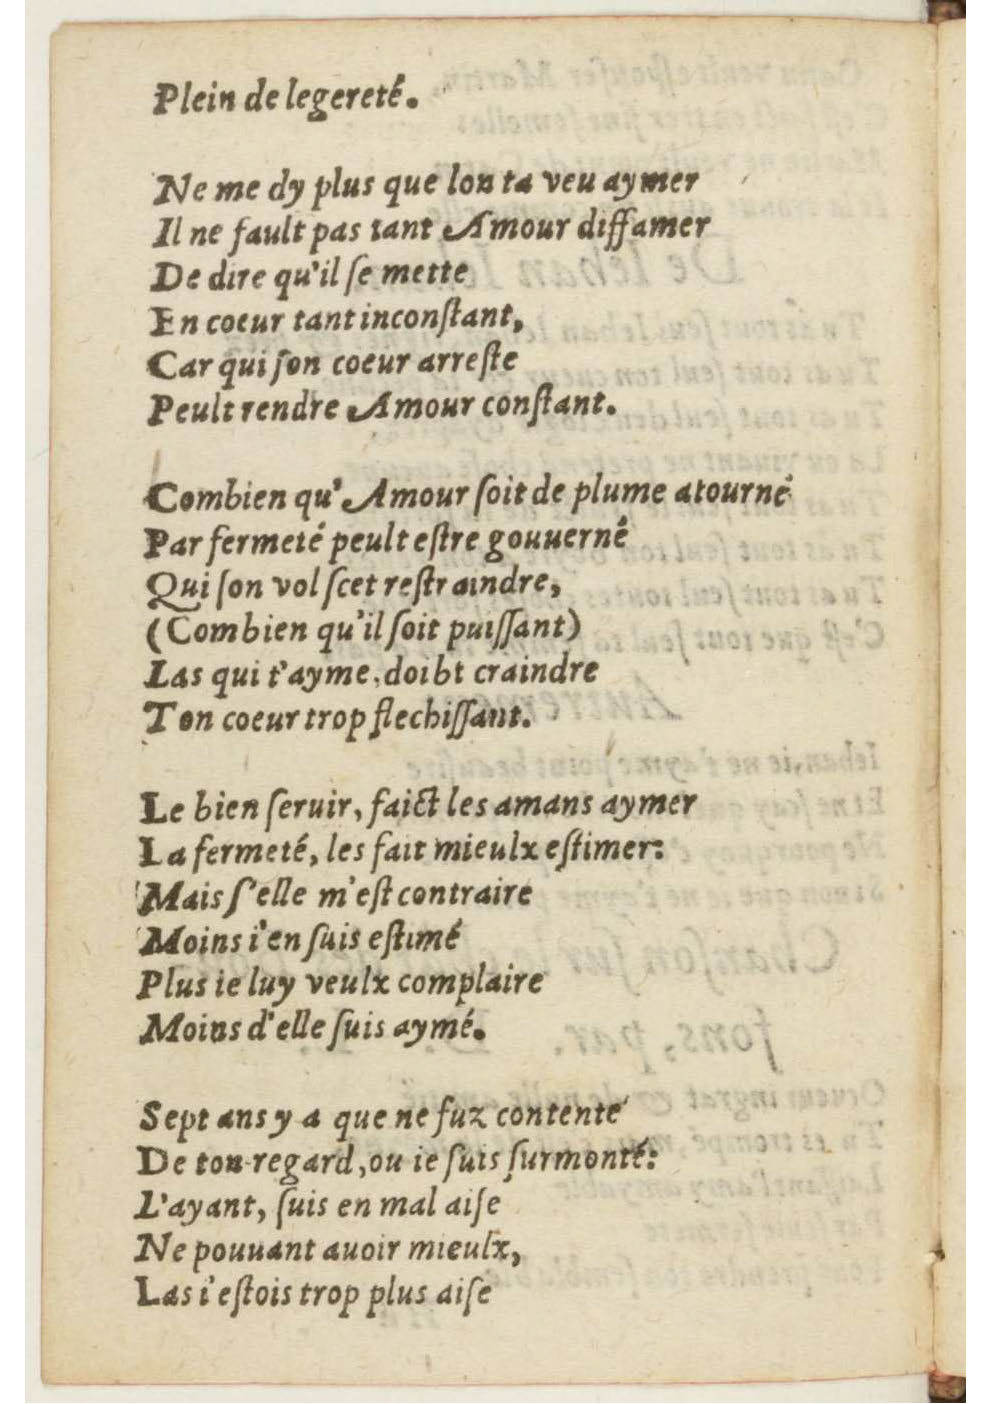 Plein de legereté.

Ne me dy plus que lon ta veu aymer
Il ne fault pas tant Amour diffamer
De dire qu'il ſe mette
En coeur tant inconſtant,
Car qui ſon coeur arreſte
Peult rendre Amour conſtant.

Combien qu'Amour ſoit de plume atourné
Par fermeté peult eſtre gouuerné
Qui ſon vol ſcet reſtraindre,
(Combien qu'il ſoit puiſſant)
Las qui t'ayme, doibt craindre
Ton coeur trop flechiſſant.

Le bien ſeruir, faict les amans aymer
La fermeté, les fait mieulx eſtimer:
Mais ſ'elle m'eſt contraire
Moins i'en ſuis eſtimé
Plus ie luy veulx complaire
Moins d'elle ſuis aymé.

Sept ans y a que ne fuz contenté
De ton regard, ou ie ſuis ſurmonté:
L'ayant, ſuis en mal aiſe
Ne pouuant auoir mieulx,
Las i'eſtois trop plus aiſe